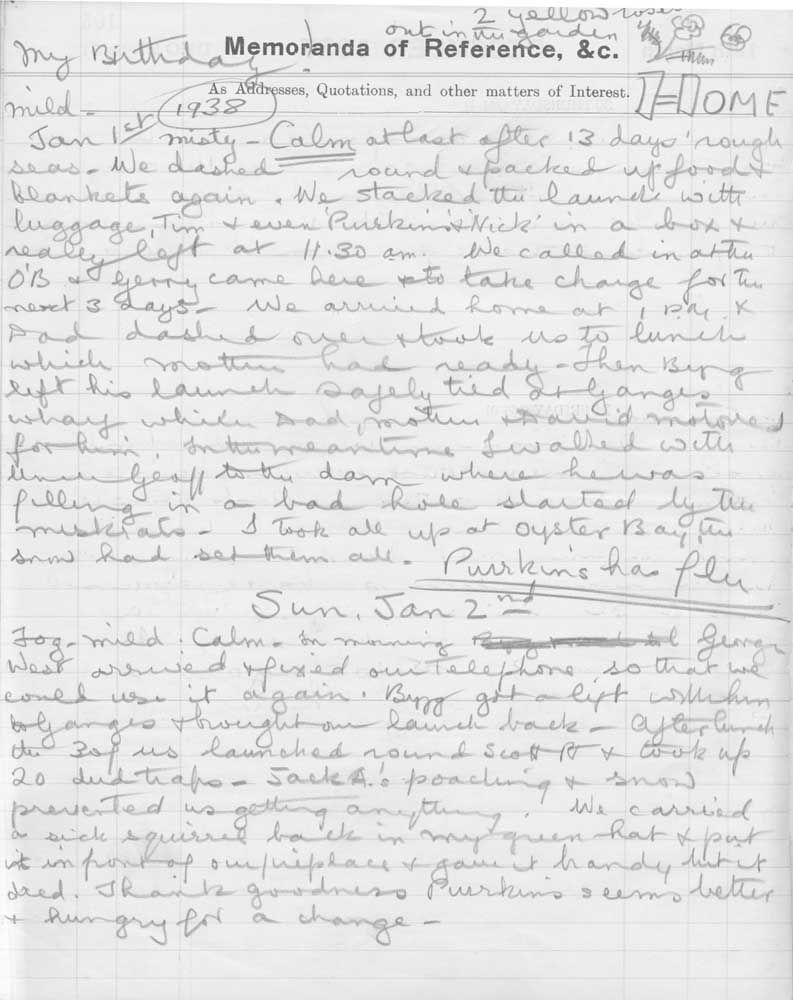 2 yellow roses
out in the garden
My Birthday!
Memoranda of Reference, &c.
As Addresses, Quotations, and other matters of Interest.
HOME
mild - 1938
Jan 1st misty - Calm at last after 13 days' rough
seas - We dashed round & packed up food &
blankets again. We stacked the launch with
luggage, Tim & even 'Purrkins' & 'Nick' in a box &
really left at 11.30 am. We called in at the
O'B & Gerry came here to take charge for the
next 3 days - We arrived home at 1 P.M. &
Dad dashed over & took us to lunch
which mother had ready - Then
left his launch safely tied at Ganges
wharf while Dad, mother & David motored
for him. In the meantime I walked with
Geoff to the dam where he was
filling in a bad hole started by the
muskrats - I took all up at Oyster Bay, the
snow had set them all. Purrkins has flu
Sun. Jan 2nd
Fog - mild. Calm - In morning George
West arrived & fixed our Telephone so that we
could use it again. got a lift with him
to Ganges & brought our launch back - After lunch
the 3 of us launched round Scott Pt & took up
20 dud traps - Jack A.'s poaching & snow
prevented us getting anything. We carried
a sick squirrel back in my green hat & put
it in front of our fireplace & gave it brandy but it
died. Thank goodness Purrkins seems better
& hungry for a change -